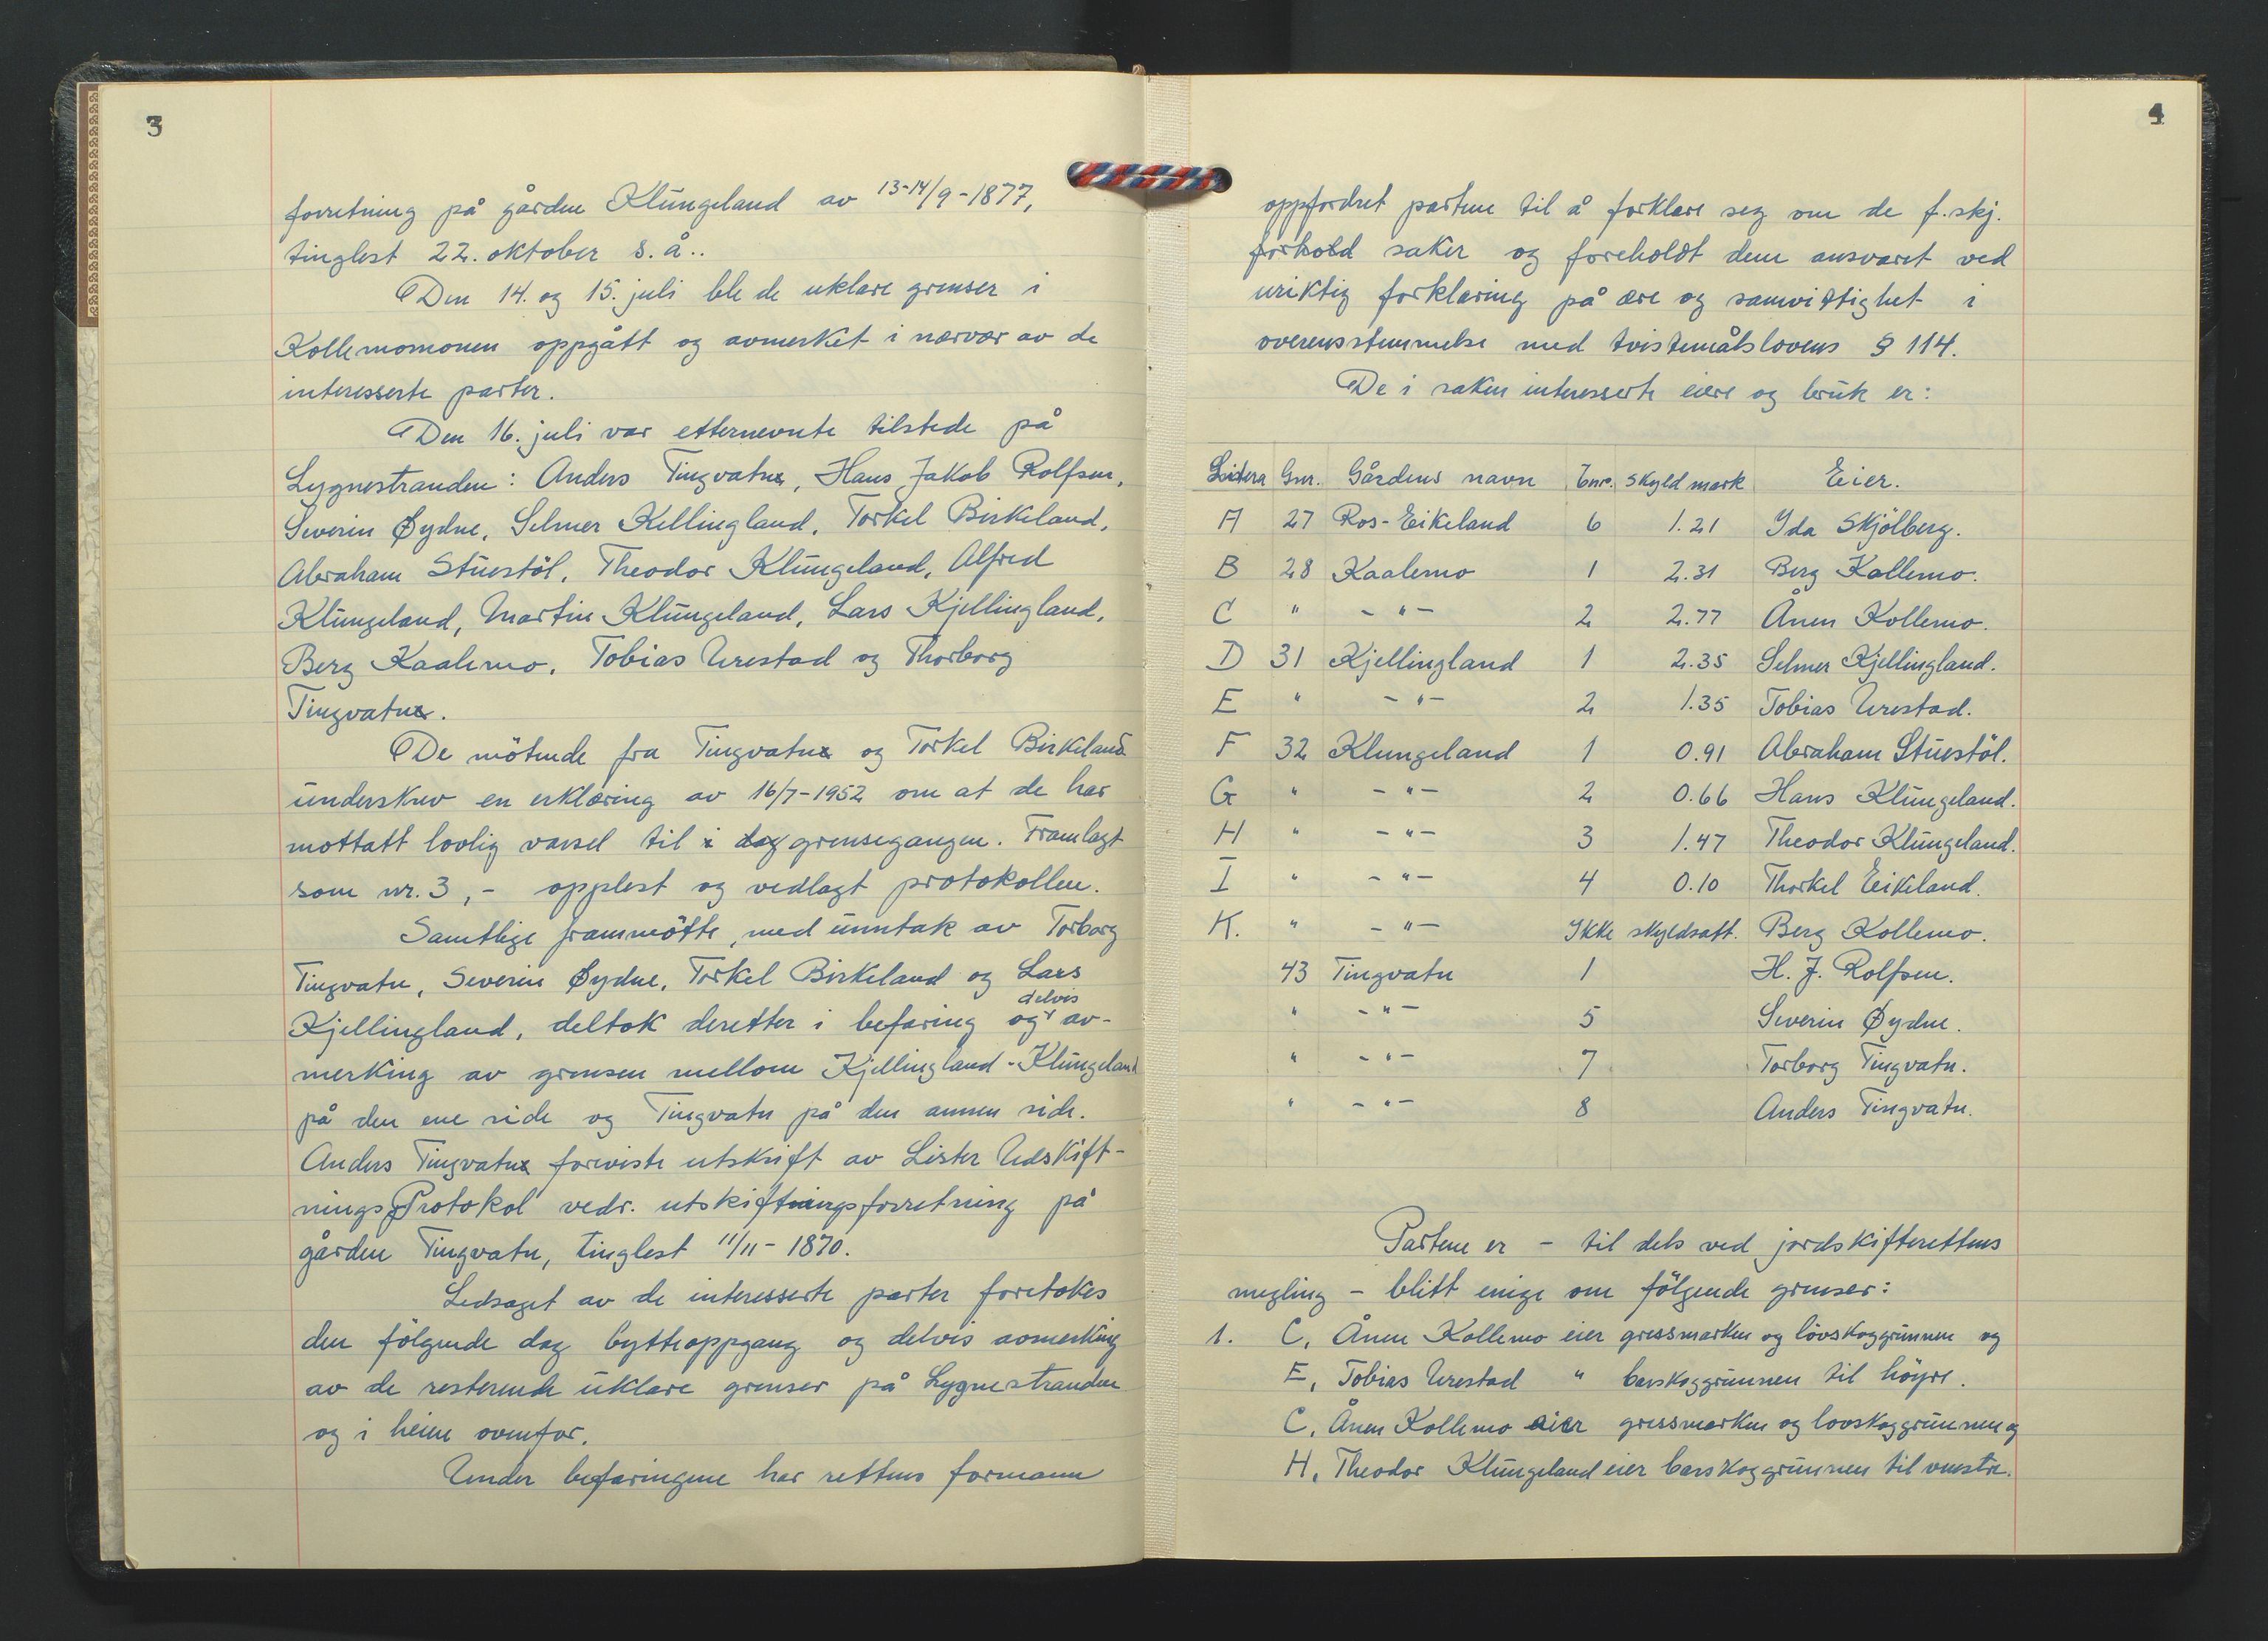 3
forretning på gården Klungeland av 13-14/9-1877,
tinglest 22. oktober s.å..
Den 14. og 15. juli ble de uklare grenser i
Kollemomonen oppgått og avmerket i nærvær av de
interesserte parter.
Den 16. juli var etternevnte tilstede på
Lygnestranden: Anders Tingvatn, Hans Jakob Rolfsen,
Severin Øydne, Selmer Kellingland, Torkel Birkeland,
Abraham Stuestöl, Theodor Klungeland, Alfred
Klungeland, Martin Klungeland, Lars Kjellingland,
Berg Kaalemo, Tobias Urestad og Thorborg
Tingvatn.
De mötende fra Tingvatn og Torkel Birkeland
underskrev en erklæring av 16/7-1952 om at de har
mottatt lovlig varsel til i dag grensegangen. Framlagt
som nr. 3,- opplest og vedlagt protokollen.
Samtlige frammötte, med unntak av Torborg
Tingvatn, Severin Øydne, Torkel Birkeland og Lars
Kjellingland, deltok deretter i befaring og delvis av-
merking av grensen mellom Kjellingland - Klungeland
på den ene side og Tingvatn på den annen side.
Anders Tingvatn foreviste utskrift av Lister Udskift-
nings Protokol vedr. utskiftningsforretning på
gården Tingvatn, tinglest 11/11-1870.
Ledsaget av de interesserte parter foretokes
den fölgende dag bytteoppgang og delvis avmerking
av de resterende uklare grenser på Lygnestranden
og i heien ovenfor.
Under befaringene har rettens formann
4
oppfordret partene til å forklare seg om de f.skj.
forhold saker og foreholdt dem ansvaret ved
uriktig forklaring på ære og samvittighet i
overensstemmelse med tvistemålslovens § 114.
De i saken interesserte eiere og bruk er:
Litera Gnr. Gårdens navn bnr. Skyld mark Eier.
A 27 Ros-Eikeland 6 1.21 Ida Skjölberg.
B 28 Kaalemo 1 2.31 Berg Kollemo.
C " - " - 2 2.77 Ånen Kollemo.
D 31 Kjellingland 1 2.35 Selmer Kjellingland.
E " - " - 2 1.35 Tobias Urestad.
F 32 Klungeland 1 0.91 Abraham Stuestöl.
G " - " - 2 0.66 Hans Klungeland.
H " - " - 3 1.47 Theodor Klungeland.
I " - " - 4 0.10 Thorkel Eikeland.
K. " - " - Ikke skyldsatt. Berg Kollemo.
43 Tingvatn 1 H. J. Rolfsen.
" - " - 5 Severin Øydne.
" - " - 7 Torborg Tingvatn.
" - " - 8 Anders Tingvatn.
Partene er - til dels ved jordskifterettens
megling - blitt enige om fölgende grenser:
1. C, Ånen Kollemo eier gressmarken og lövskoggrunnen og
E, Tobias Urestad " barskoggrunnen til höyre.
C, Ånen Kollemo eier gressmarken og lovskoggrunnen og
H, Theodor Klungeland eier barskoggrunnen til venstre.